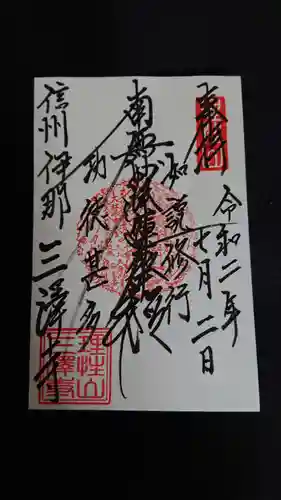 奉拝
令和二年
七月二日
如説修行
南無妙法蓮華経
功徳甚多
信州伊那 三澤寺
理性山
三澤寺